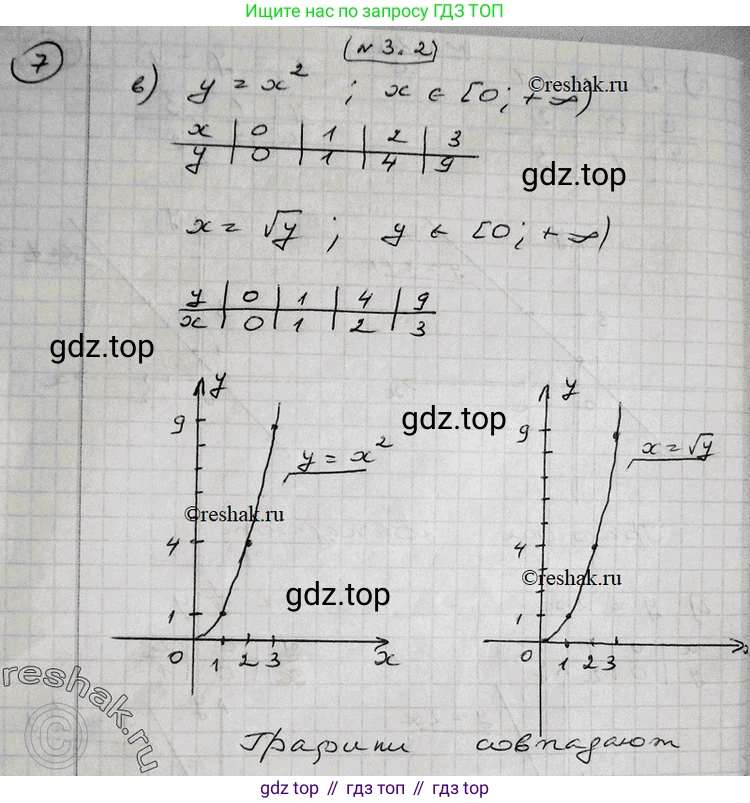 Ищите нас по запросу ГДЗ ТОП
7
(N 3.2)
в) y = x² ; x ∈ [0; +∞)
©reshak.ru
x | 0 | 1 | 2 | 3
y | 0 | 1 | 4 | 9
gdz.top
x = √y ; y ∈ [0; +∞)
y | 0 | 1 | 4 | 9
x | 0 | 1 | 2 | 3
gdz.top
y
y
9
9
gdz.top
y = x²
x = √y
©reshak.ru
4
4
©reshak.ru
gdz.top
1
1
0 1 2 3 x
0 1 2 3
reshak.ru
©
Графики совпадают
gdz.top // гдз топ // gdz.top